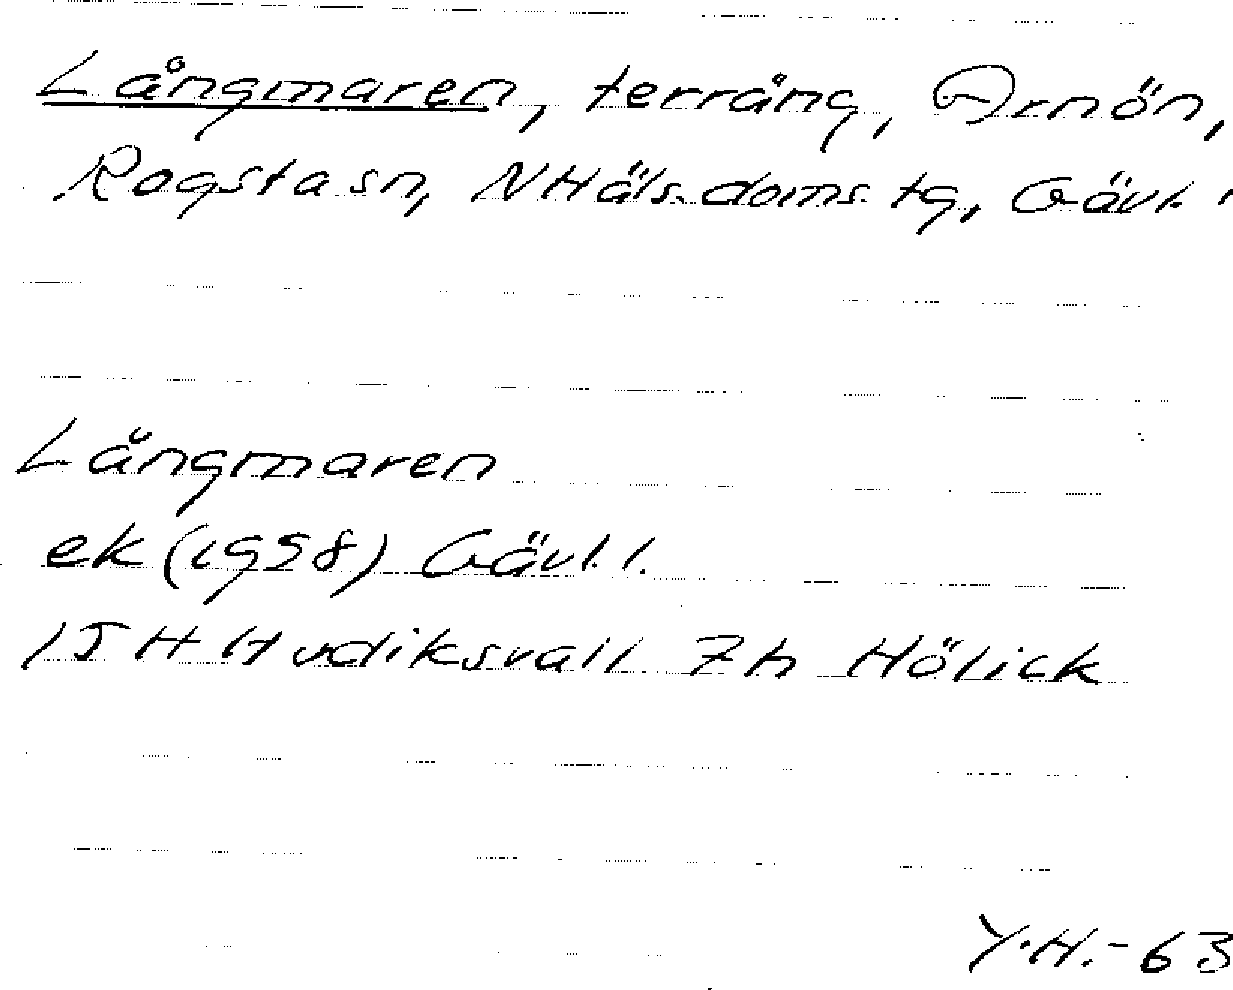 Långmaren, terräng, Arnön,
Rogsta sn, N Häls. doms. tg, Gävl. l
Långmaren
ek (1958) Gävl. l.
15 H Hudiksvall 7h Hölick
Y.H.-63